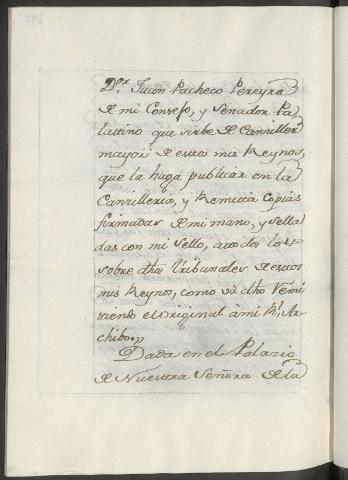 D.or Juan Pacheco Pereyra
de mi Consejo, y Senador Pa
latino que sirbe de Canziller
mayor de estos mis Reynos,
que la haga publicar en la
Canzilleria, y Remita Copias
firmadas de mi mano, y sella
das con mi sello, a todos los
sobre dhos tribunales de estos
mis Reynos, como vá dho Remi
tiendo el original a mi Rl Ar
chibo
Dada en el Palazio
de Nuestra Señora de la